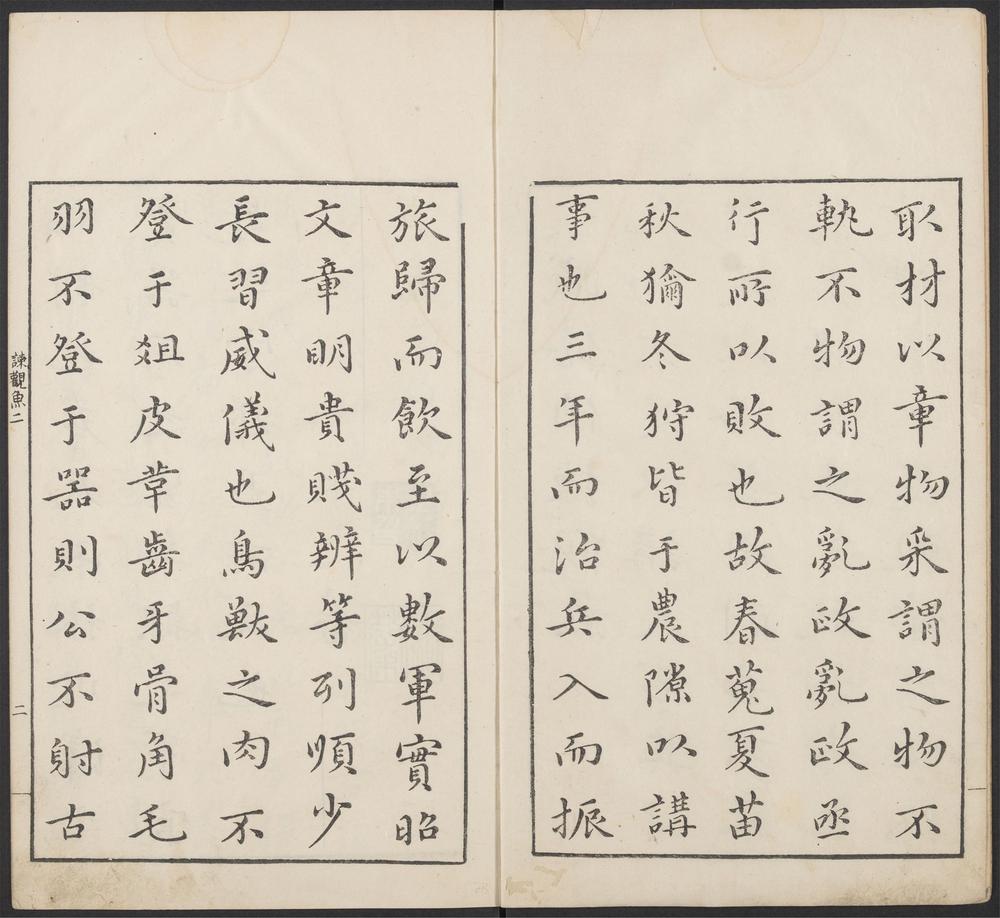 取材以章物采謂之物不
軌不物謂之亂政亂政亟
行所以敗也故春蒐夏苗
秋獮冬狩皆于農隙以講
事也三年而治兵入而振
旅歸而飲至以數軍實昭
文章明貴賤辨等列順少
長習威儀也鳥獸之肉不
登于俎皮革齒牙骨角毛
羽不登于器則公不射古
諫觀魚二
二
一